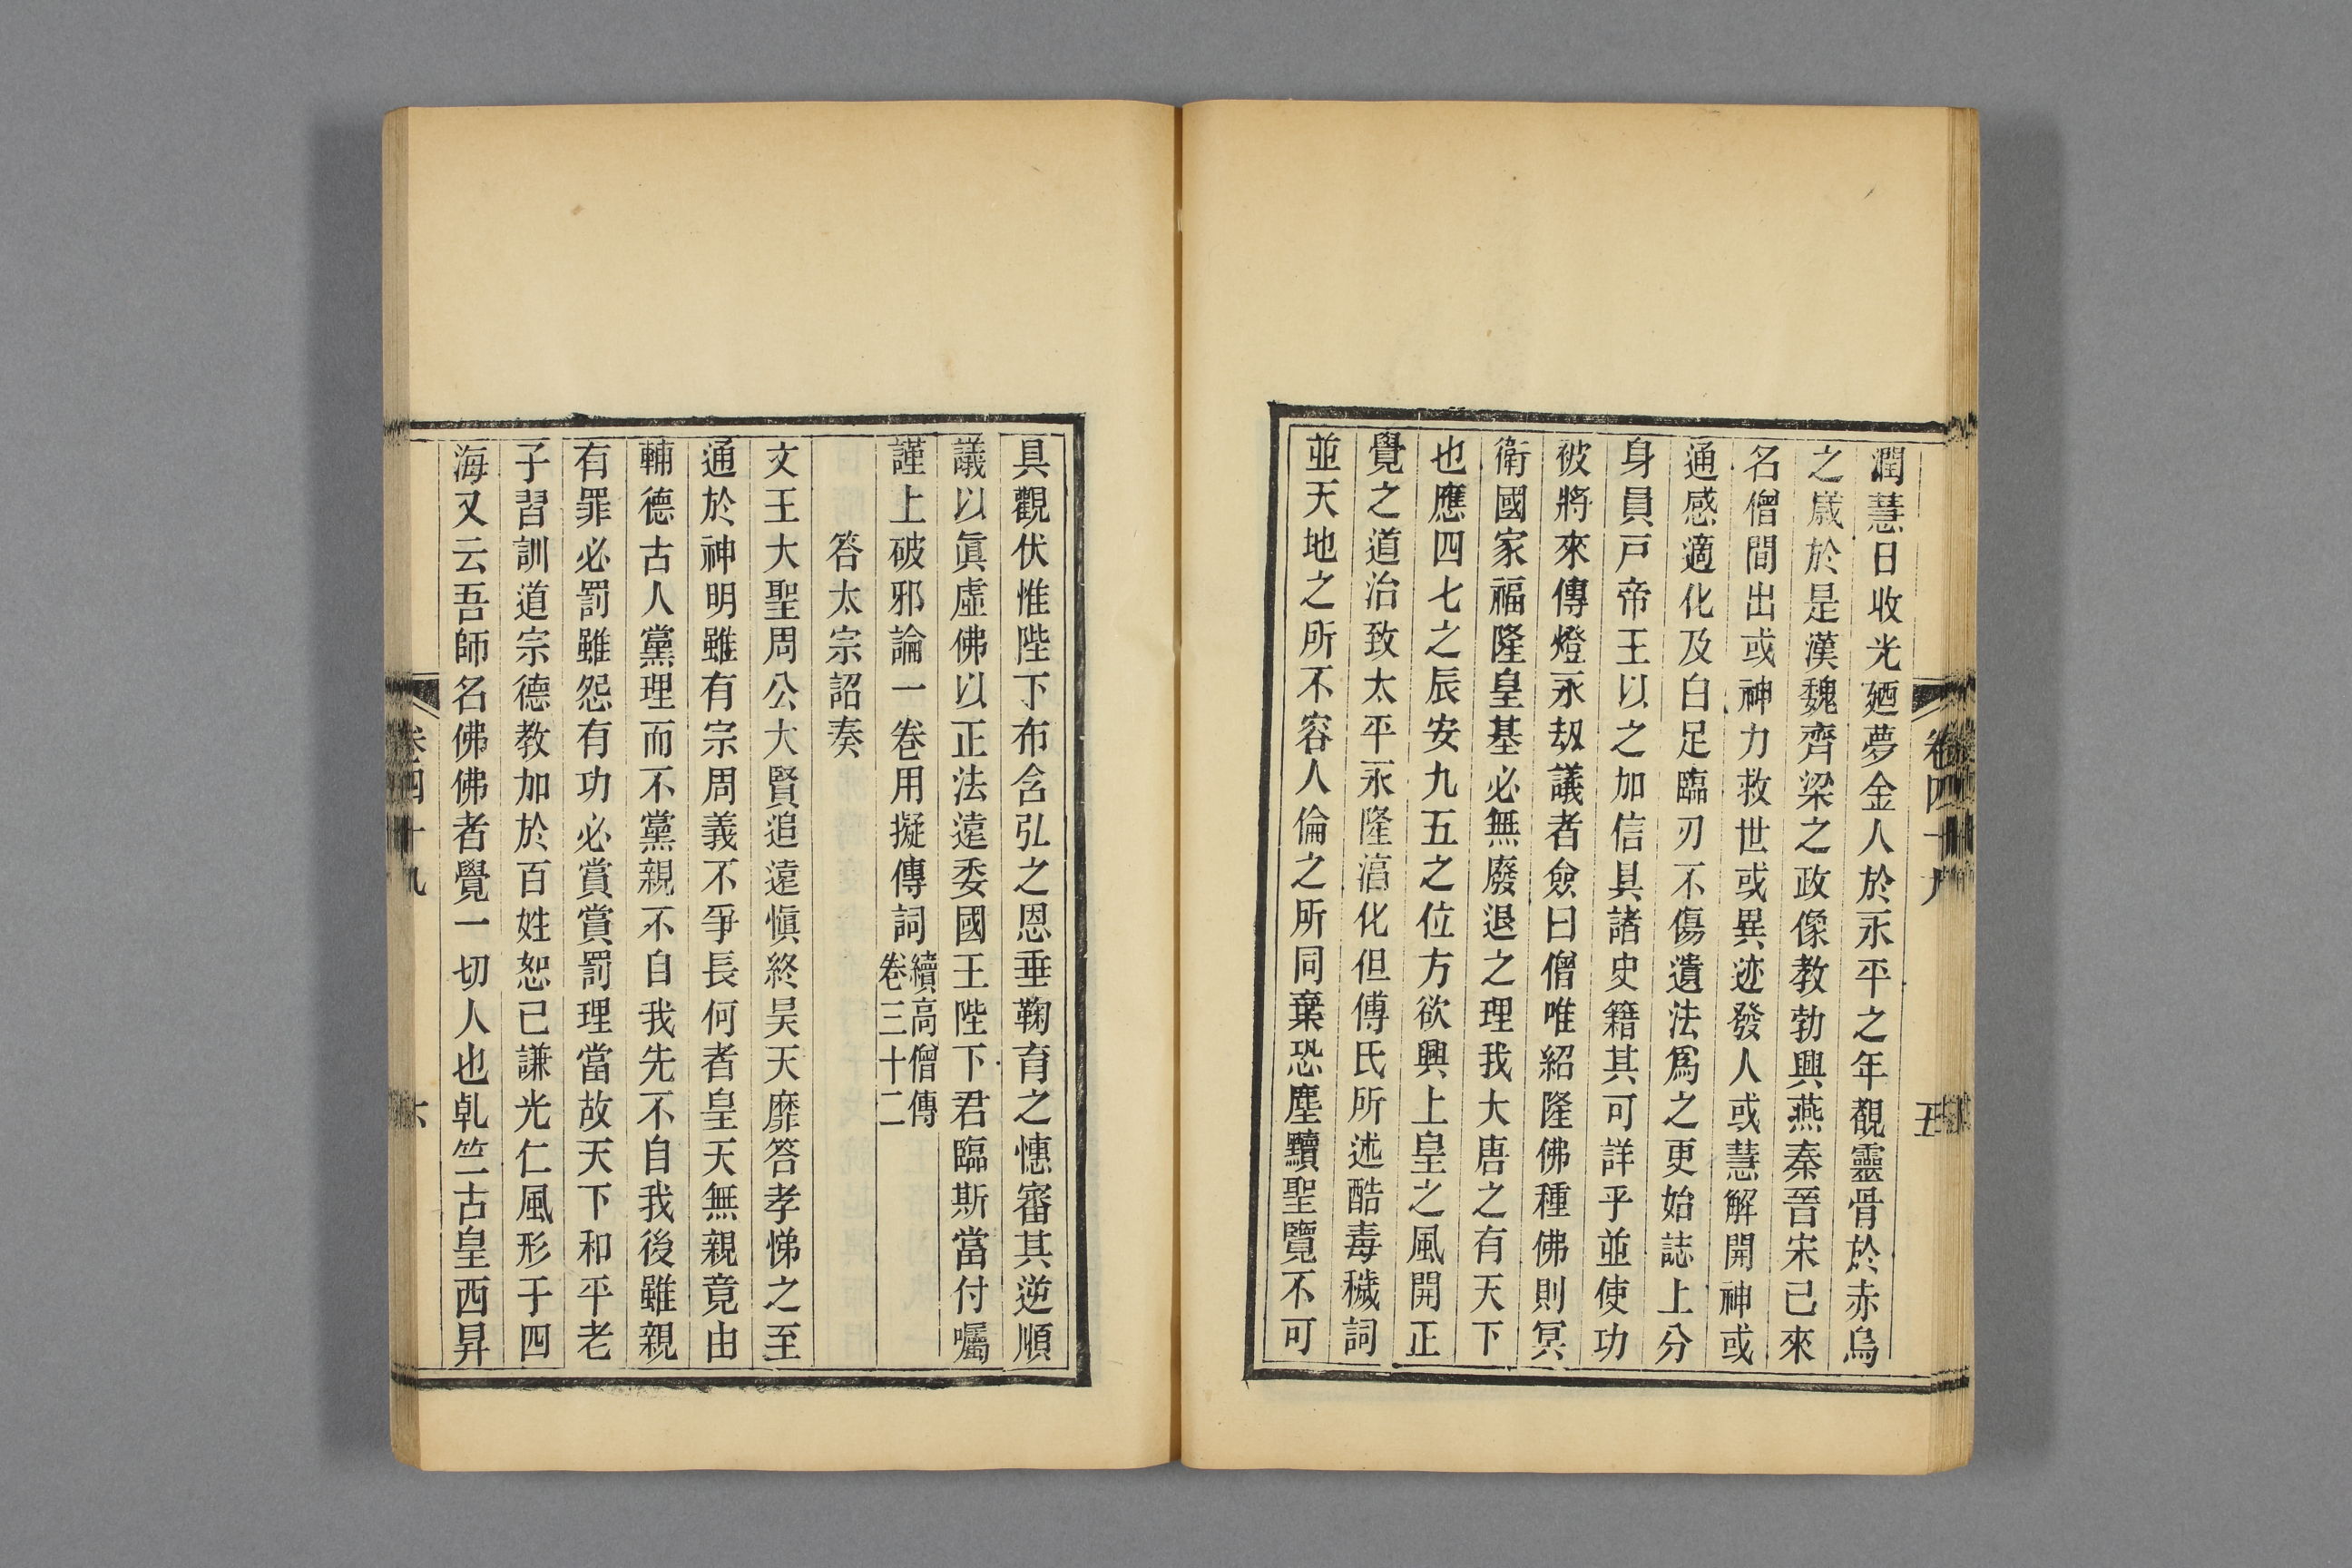 潤慧日收光廼夢金人於永平之年覩靈骨於赤烏
之歳於是漢魏齊梁之政像教勃興燕秦晉宋已來
名僧間出或神力救世或異迹發人或慧解開神或
通感適化及白足臨刃不傷遺法爲之更始誌上分
身員戸帝王以之加信具諸史籍其可詳乎並使功
被將來傳燈永刼議者僉曰僧唯紹隆佛種佛則冥
衛國家福隆皇基必無廢退之理我大唐之有天下
也應四七之辰安九五之位方欲興上皇之風開正
覺之道治致太平永隆湻化但傅氏所述酷毒穢詞
並天地之所不容人倫之所同棄恐塵黷聖覽不可
卷四十九
五
具觀伏惟陛下布含弘之恩垂鞠育之慓審其逆順
議以眞虛佛以正法遠委國王陛下君臨斯當付囑
謹上破邪論一卷用擬傳詞續高僧傳
卷三十二
答太宗詔奏
文王大聖周公大賢追遠愼終昊天靡答孝悌之至
通於神明雖有宗周義不爭長何者皇天無親竟由
輔德古人黨理而不黨親不自我先不自我後雖親
有罪必罰雖怨有功必賞賞罰理當故天下和平老
子習訓道宗德教加於百姓恕己謙光仁風形于四
海又云吾師名佛佛者覺一切人也乹竺古皇西昇
卷四十九
六